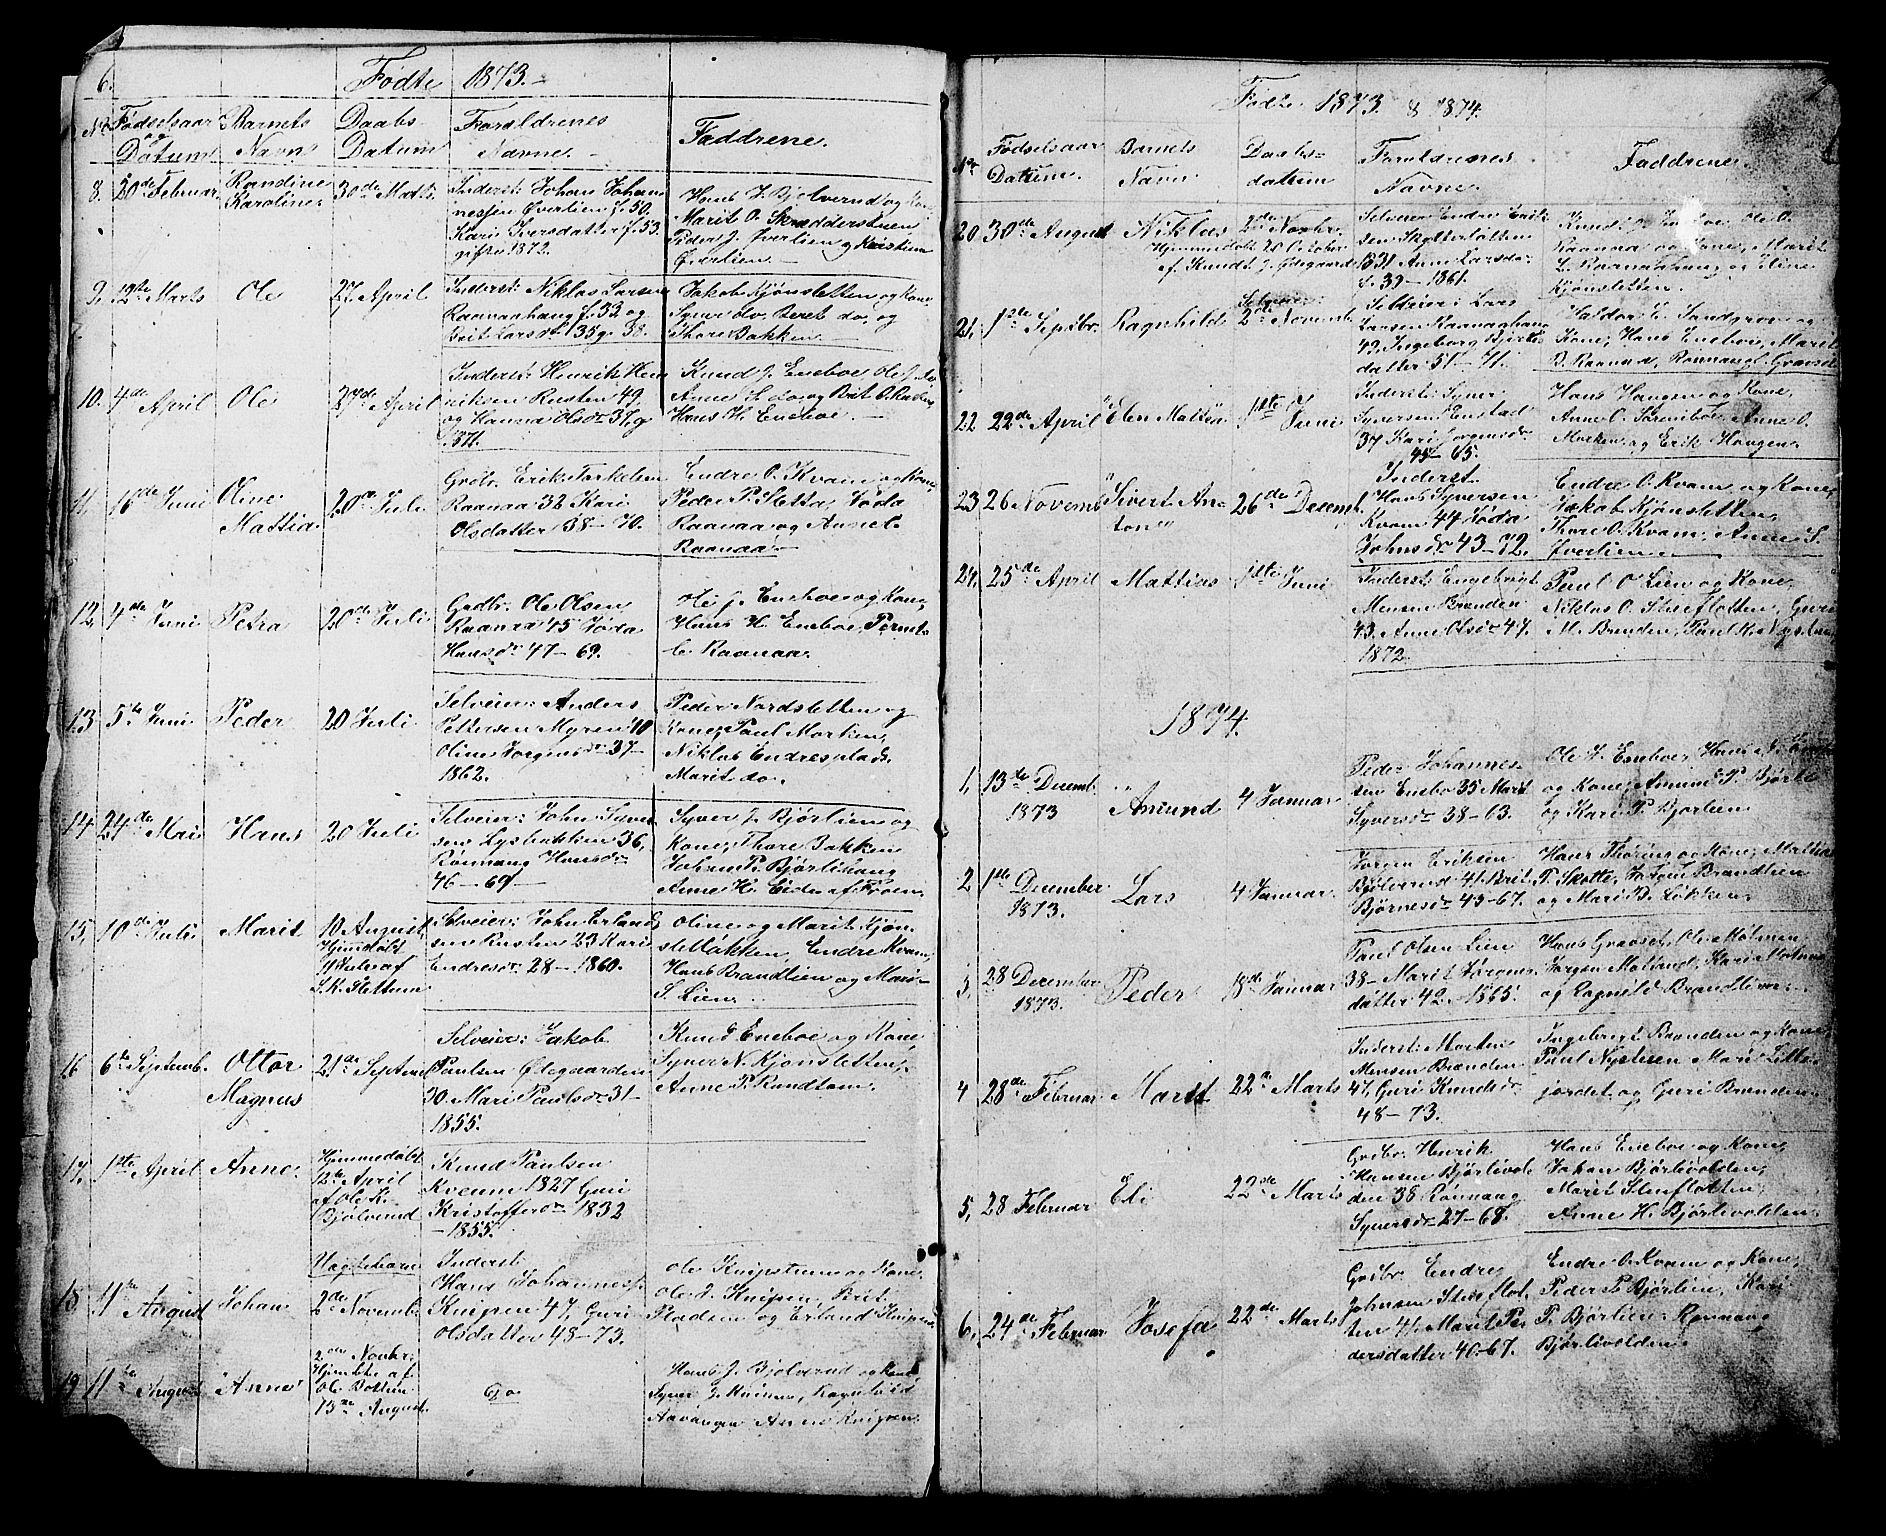 6.
Fødte 1873.
No Fødselsaar og Datum
Barnets Navn
Daabs Datum
Forældrenes Navne.
Faddrene.
8. 20de Februar
Randine Karoline
30de Marts
Inderst: Johan Johan
nessen Øverlien f. 50.
Kari Iversdatter f. 53
gifte 1872.
Hans J. Bjølverud og Kone
Marit O. Skrædderstuen
Peder J. Øverlien og Kristian
Øverlien
9, 12te Marts
Ole
27 April
Inderst: Niklas Larsen
Raanaahaug f. 53 og
Brit Larsdr 35 g. 38.
Jakob Kjønsletten og Kone,
Syver do, Beret do, og
Thore Bakken
10. 4de April
Ole
27de April
Inderst: Henrik Hen
riksen Rusten 49,
og Hanna Olsdr 37, g
1871.
Knud J. Eneboe Ole J. do
Anne S. do, Brit O. Rusten,
Hans H. Eneboe.
11, 16de Juni
Oline Mattia
20de Juli
Grdbr. Erik Torkelsen
Raanaa 32 Kari
Olsdatter 38–70.
Endre O. Kvam og Kone,
Peder P. Sletta Jøda
Raanaa og Anne E.
Raanaa
12, 4de Juni
Petra
20de Juli
Grdbr: Ole Olsen
Raanaa 45 Jøda
Hansdr 47–69.
Ole J. Eneboe og Kone,
Hans H. Eneboe, Pernil
E. Raanaa.
13 5te Juni
Peder
20 Juli
Selveier: Anders
Pettersen Myren 40
Oline Jørgensdr 37–
1862.
Peder Nordsletten og
Kone, Paul Morken,
Niklas Endresplads
Marit do.
14 24de Mai
Hans
20 Juli
Selveier: John Syver
sen Lysbakken 36,
Rønnaug Hansdr
46–69
Syver J. Bjørlien og
Kone, Thore Bakken
Johan P. Bjørlihaug
Anne H. Eide af Froen.
15, 10de Juli
Marit
10 August
Hjemdøbt
11 Juli af
S. K. Slettum
Selveier: John Erland
sen Rusten 23 Kari
Endresdr 28–1860.
Oline og Marit Kjøn
sletløkken, Endre Kvam,
Hans Brandlien og Mari
S. Lien.
16 6te Septemb.
Ottar Magnus
21de Septem
Selveier: Jakob
Paulsen Ødegaarden
30. Mari Paulsdr 31–
1855.
Knud Eneboe og Kone,
Syver N. Kjønsletten,
Anne P. Rundtom.
17, 1ste April
Anne
Hjemmedøbt
12te April
af Ole K.
Bjølverud
Knud Paulsen
Kvenne 1827 Guri
Kristoffersdr 1832
–1855.
Uægtebarn
18 11te August
Johan
2de Novemb
Inderst
Hans Johanness.
Knipen 47, Guri
Olsdatter 48–73.
Ole Knipstuen og Kone,
Ole J. Knipen, Brit
Pladsen og Erland Knipen
19 11te August
"Anne"
2den Novbr.
Hjemme af
Ole Bottem
13de August.
do
Hans J. Bjølverud og Kone
Syver J. Knipen, Ragnhild
Anne Knipen.
Fødte 1873 & 1874.
No Fødselsaar Datum.
Barnets Navn
Daabs-datum
Forældrenes Navne.
Faddrene
20 30de August
Niklas
2de Novbr.
Hjemmedøbt 20 October
af Knud J. Ødegaard
Selveier Endre Erik
sen Skotterløtten
1831 Anne Larsdr
f. 39–1861.
Knud J. Eneboe, Ole O.
Raanaa og Kone, Marit
L. Raanaahaug og Eline
Kjønsletten.
21, 1ste Septbr.
Ragnhild
2de Novemb
Selveier: Lars
Larsen Raanaahaug
49, Ingeborg Bjørns
datter 51–71.
Haldor E. Sandgrov og
Kone, Hans Eneboe, Marit
22 22de April
"Elen Mattea"
1ste Juni
Inderst: Syver
Syversen Enstad
37 Kari Jørgensdr
45–65.
Hans Haugen og Kone,
Anne O.
Morken og Erik Haugen.
23 26 Novemb
"Sivert An-
ton"
26de Decemb
Inderst
Hans Syversen
Kvam 44 Jøda
Johnsdr 43–72.
Endre O. Kvam og Kone,
Jakob Kjønsletten,
Thore O. Kvam, Anne S.
Øverlien
24, 25de April
Mattias
1ste Juni
Inderst: Engebrigt
Monsen Brænden
43, Anne Olsdr 47.
1872.
Paul O. Lien og Kone,
Niklas O. Stueflotten, Guri
M. Brænden, Paul K. Nystuen
1874.
1, 13de Decemb. 1873
Amund
4 Januar
Peder Johannes
sen Enebo 35 Marit
Syversdr 38–63.
Ole J. Eneboe, Hans J. Eneboe
og Kone, Amund P. Bjørlien
og Kari P. Bjørlien
2 1ste December 1873.
Lars
4 Januar
Jørgen Eriksen
Bjølverud 41. Brit
Bjørnesdr 43–67.
Hans Thøring og Kone, Mattias
P. Skotte, Johan Brandlien
og Mari B. Løkken.
3, 28 December 1873.
Peder
18de Januar
Paul Olsen Lien
38– Marit Jørgens
datter 42. 1865.
Hans Gravset, Ole Molmen,
Jørgen Moland, Kari Molmen
og Ragnild Brandlien.
4 28de Februar
Marit
22de Marts
Inderst: Morten
Monsen Brænden
47, Guri Knudsdr
48–73.
Ingebrigt Brænden og Kone
Paul Nystuen Mari Lille
jordet og Guri Brænden
5, 28 Februar
Eli
22de Marts
Grdbr: Henrik
Hansen Bjørlivol
den 38 Rønnaug
Syversdr 27–68.
Hans Eneboe og Kone,
Johan Bjørlivolden,
Marit Stueflotten,
Anne H. Bjørlivolden.
6, 24de Februar
Josefa
22de Marts
Grdbr Endre
Johnsen Stueflot
ten 41 Marit Pe
dersdatter 40–67.
Endre O. Kvam og Kone,
Peder P. Bjørlien, Kari
P. Bjørlien Rønnaug
Bjørlivolden.